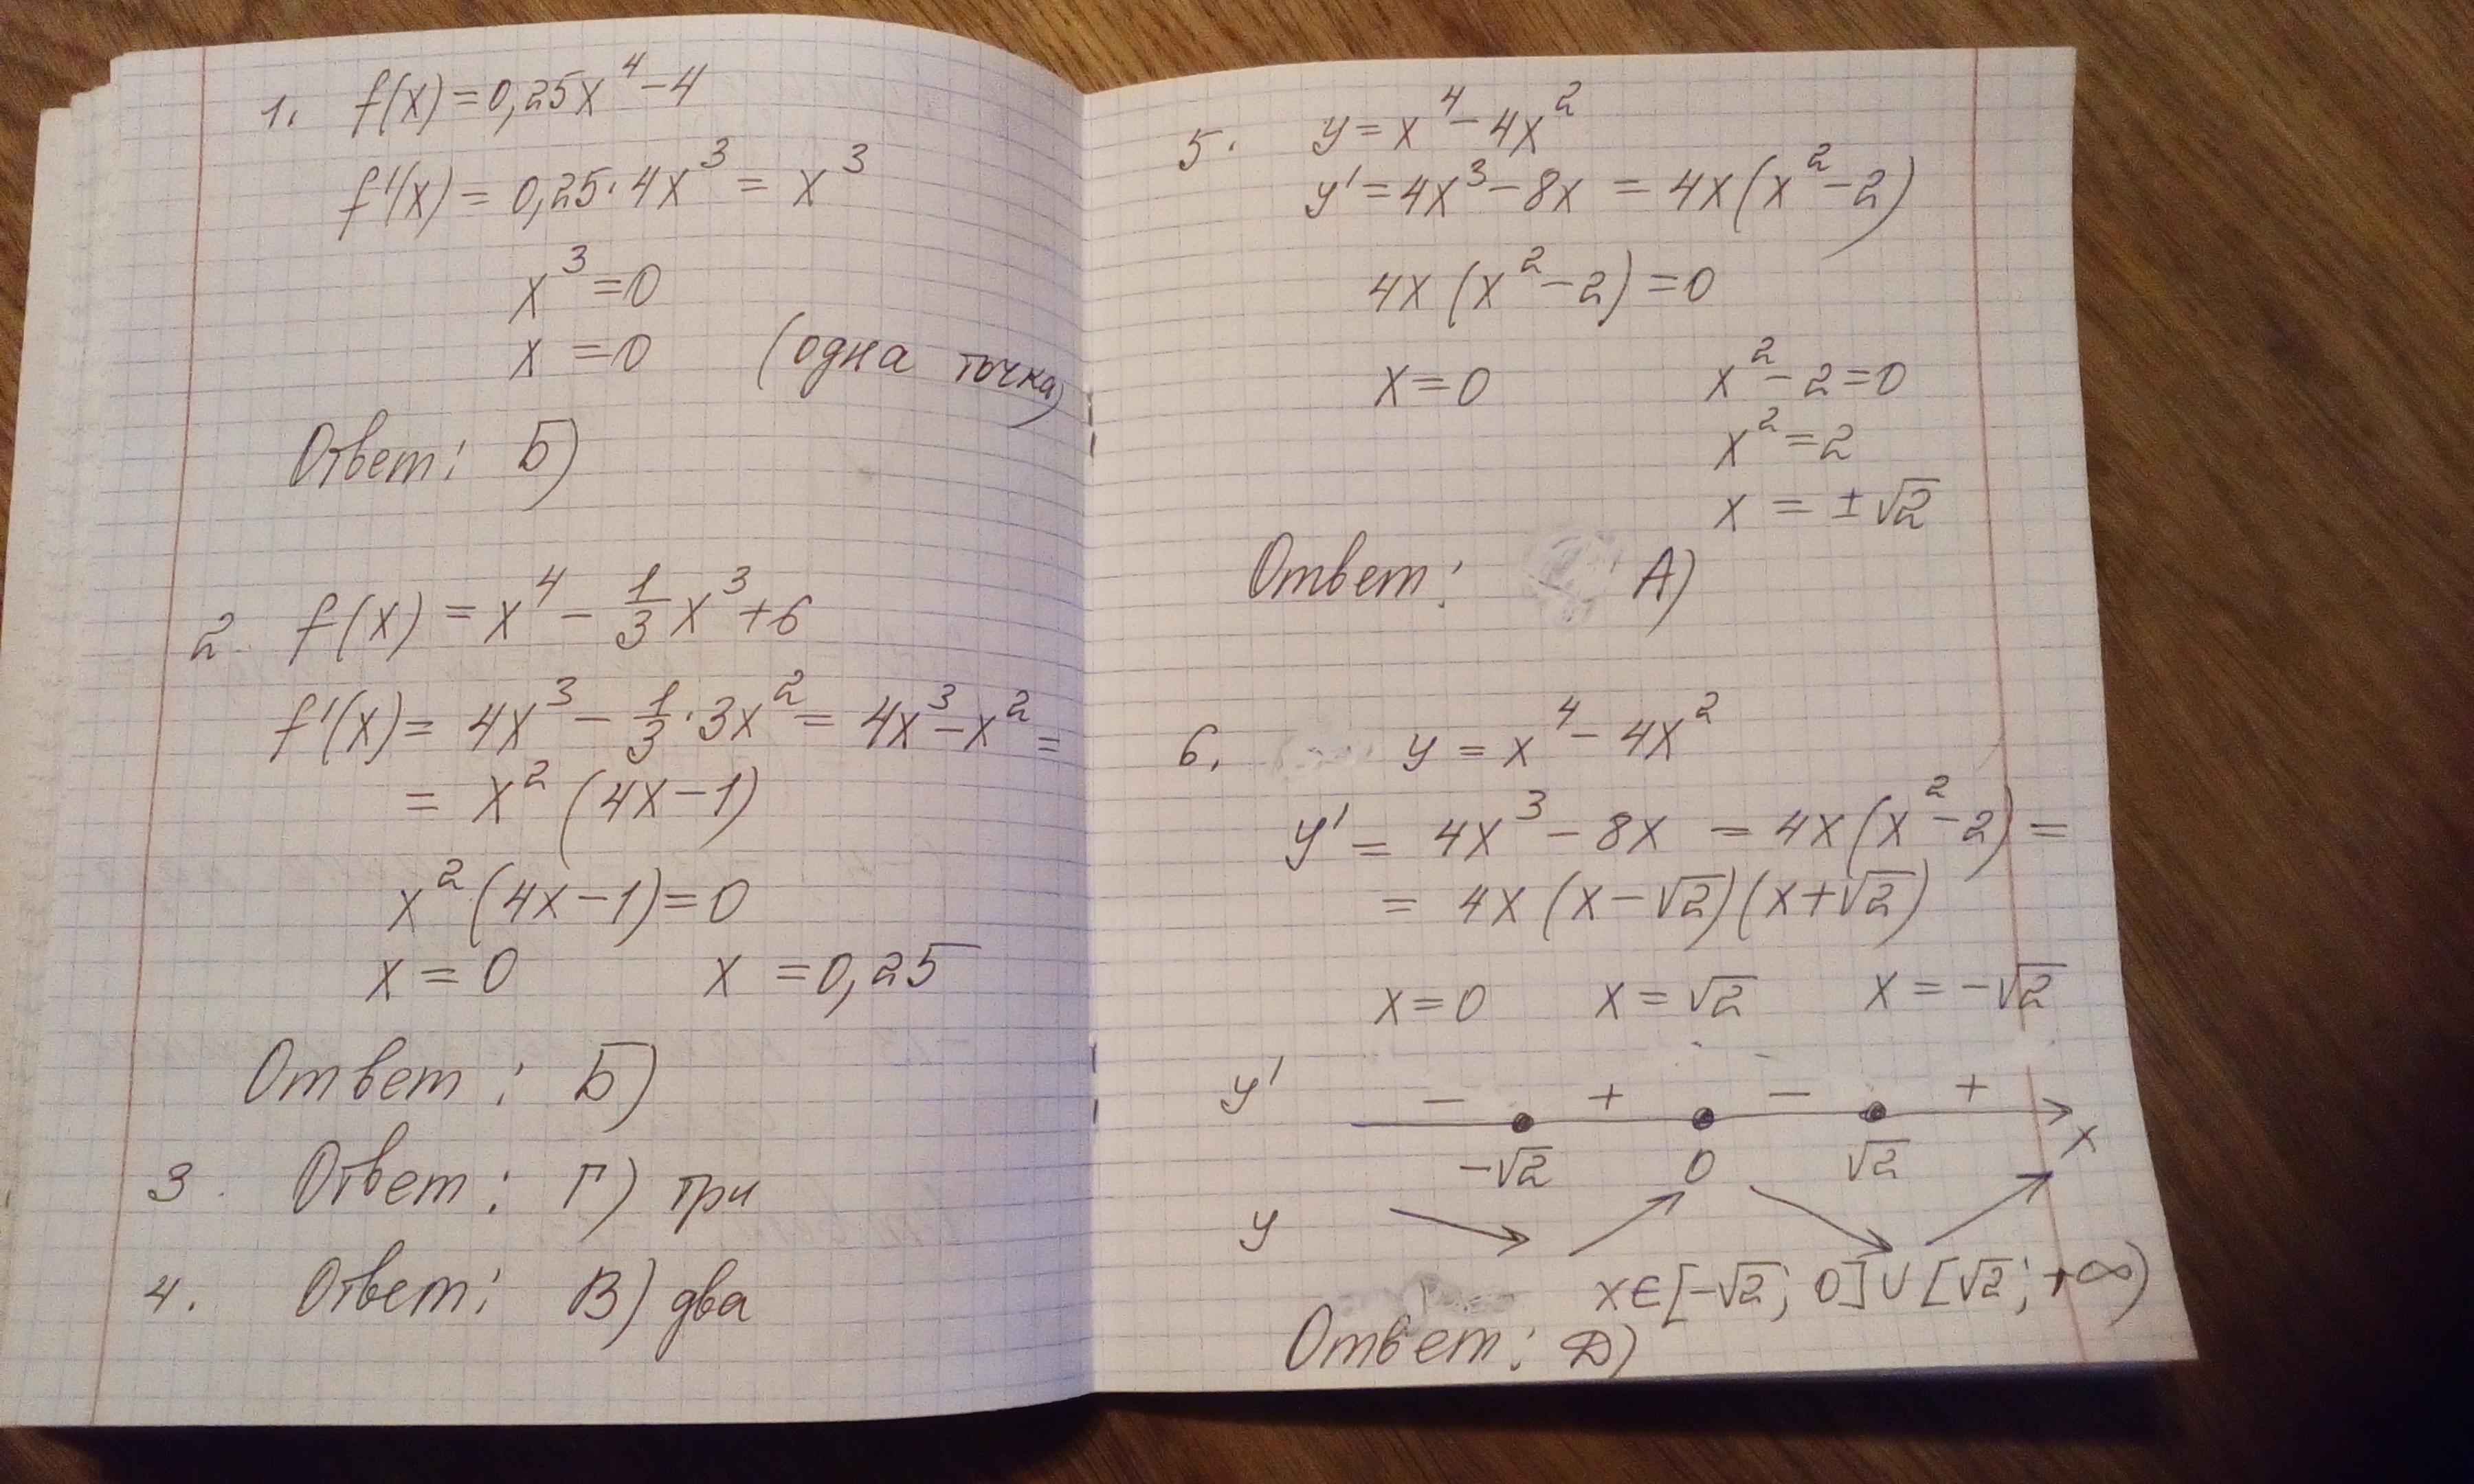 1. f(x)=0,25x⁴-4
f'(x)=0,25·4x³=x³
x³=0
x=0 (одна точка)
Ответ: Б)
2. f(x)=x⁴-1/3x³+6
f'(x)=4x³-1/3·3x²=4x³-x²=
=x²(4x-1)
x²(4x-1)=0
x=0 x=0,25
Ответ: Б)
3. Ответ: Г) три
4. Ответ: В) два
5. y=x⁴-4x²
y'=4x³-8x=4x(x²-2)
4x(x²-2)=0
x=0 x²-2=0
x²=2
x=±√2
Ответ: А)
6. y=x⁴-4x²
y'=4x³-8x=4x(x²-2)=
=4x(x-√2)(x+√2)
x=0 x=√2 x=-√2
y' - + - +
-√2 0 √2 x
y
x∈[-√2; 0]∪[√2; +∞)
Ответ: Д)